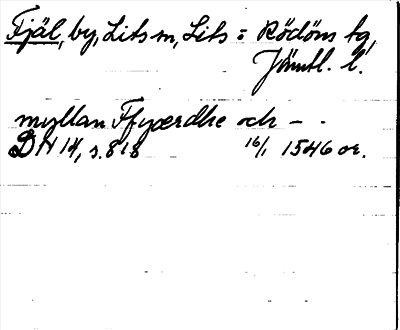 Fjäl, by, Lits sn, Lits o Rödöns tg,
Jämtl. l.
myllan Ffyærdhe och - -
DN 14, s. 818 16/1 1546 or.